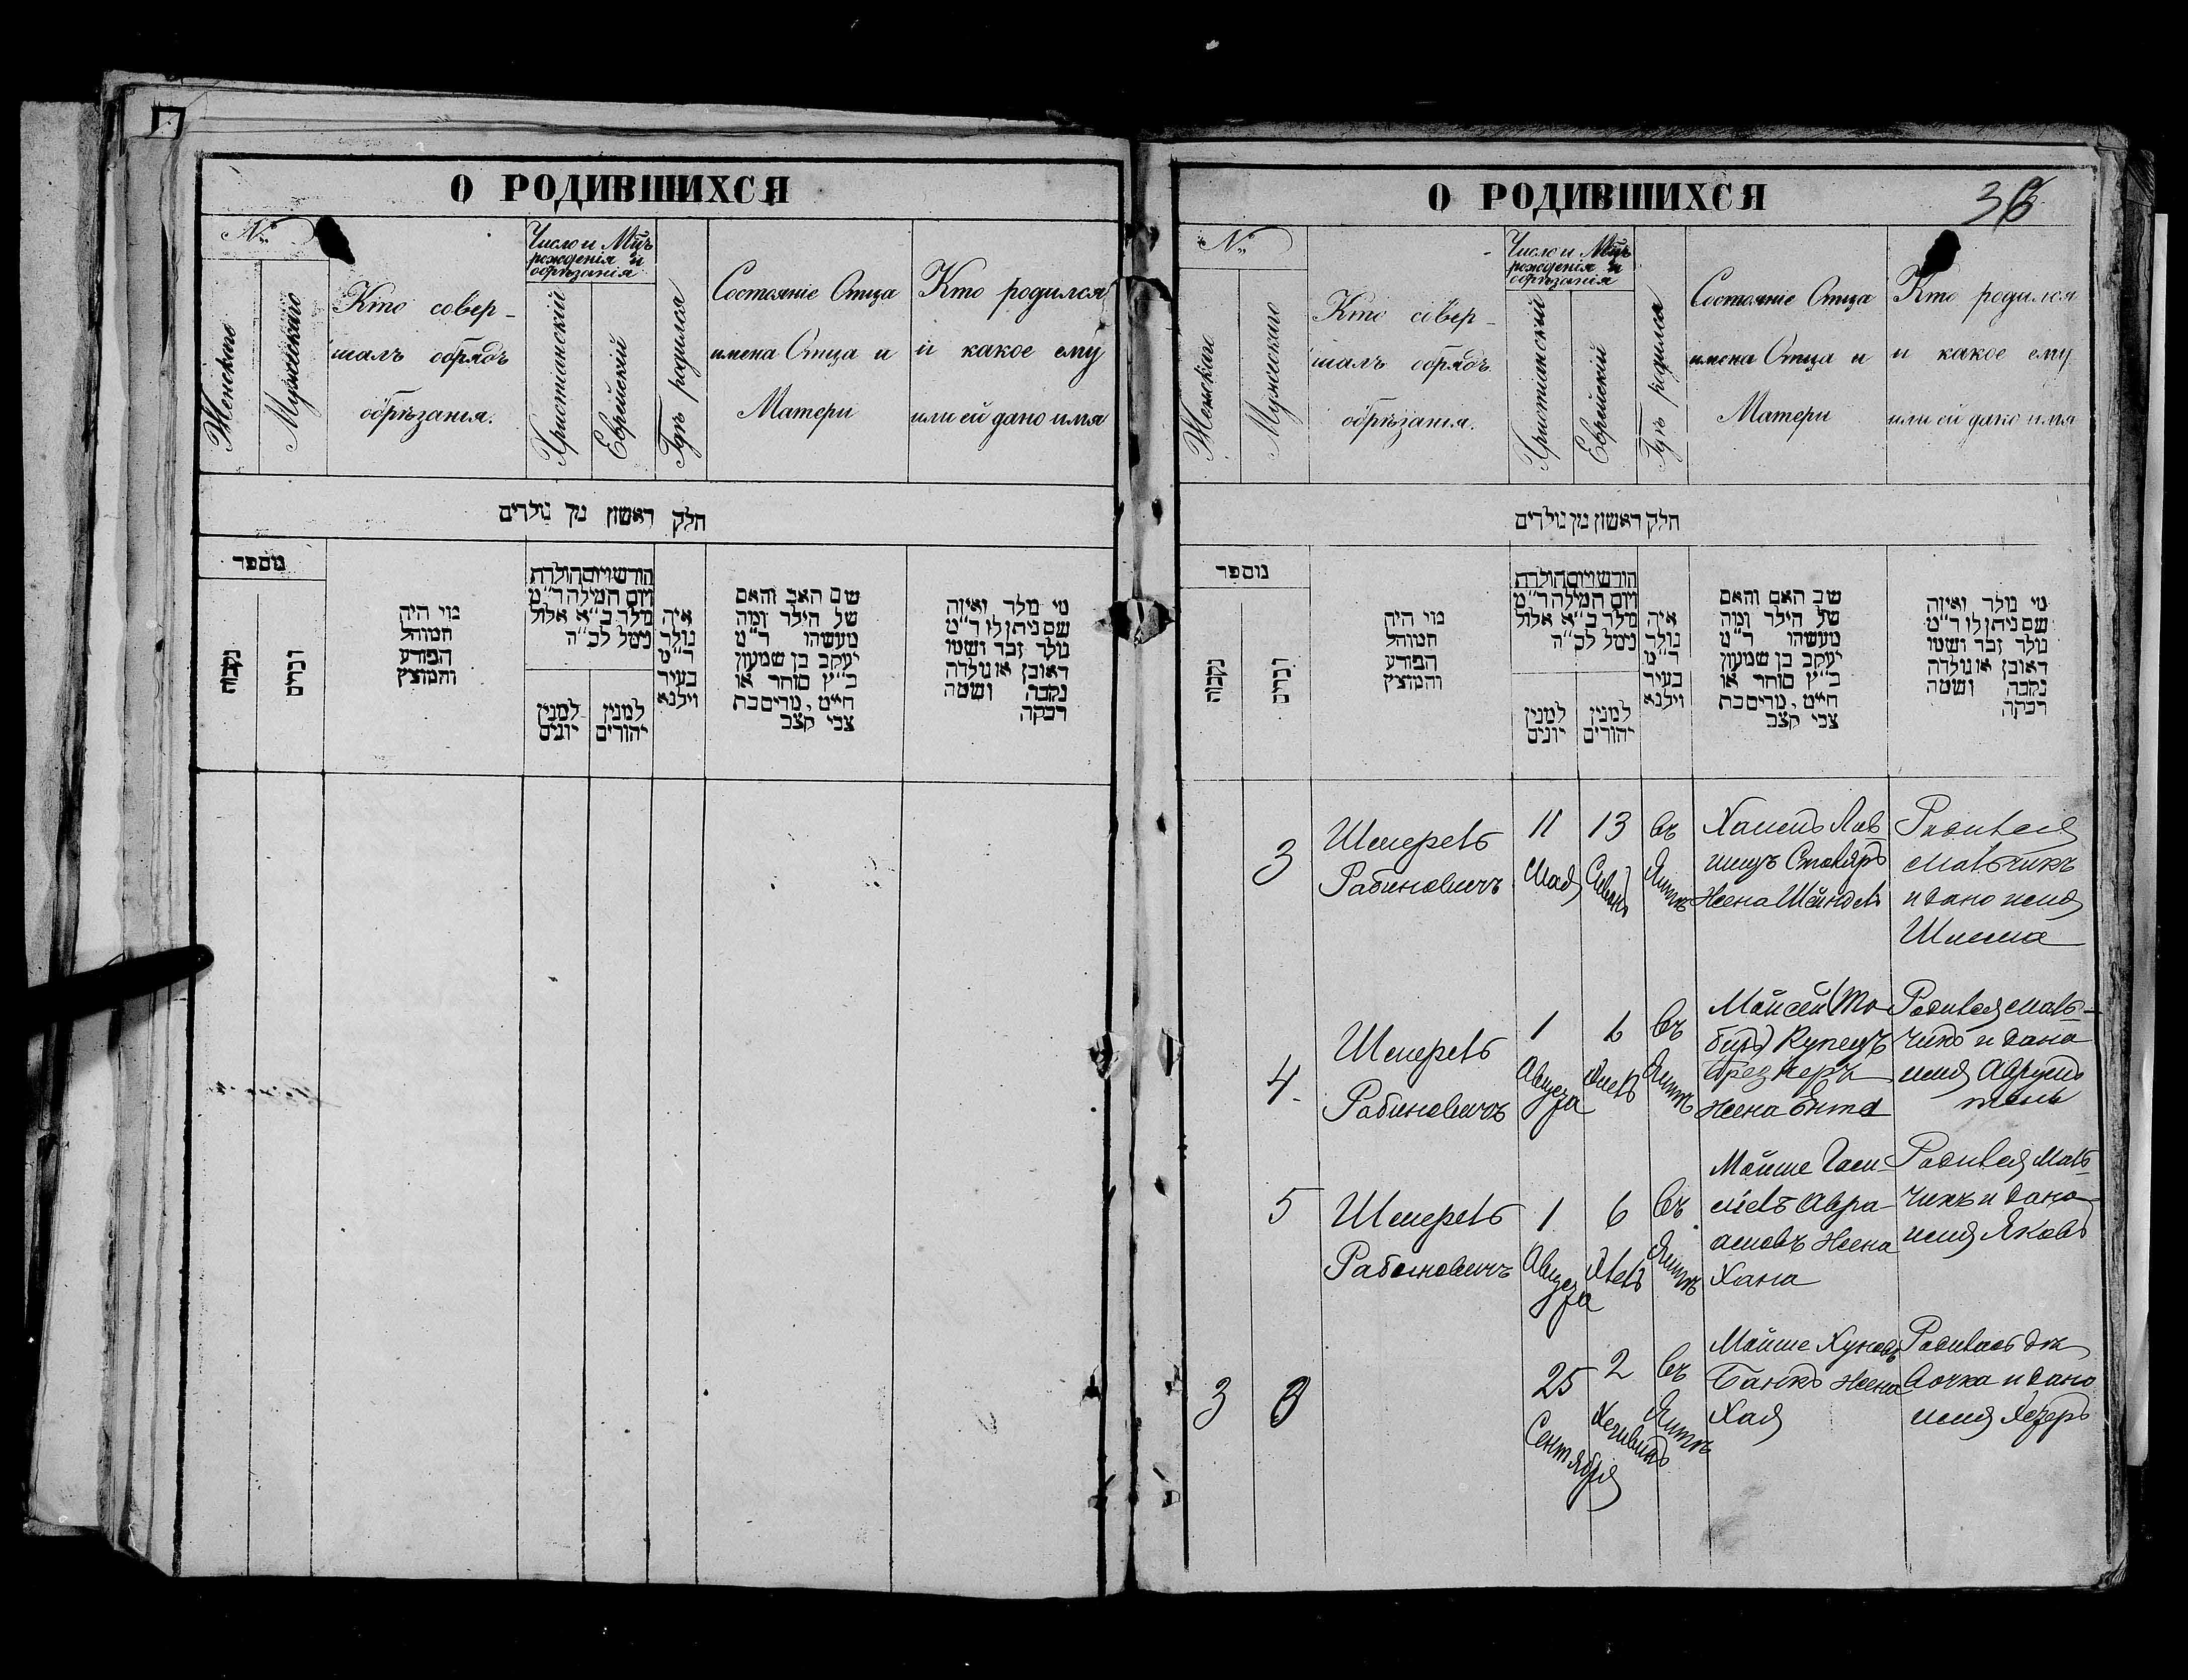 О РОДИВШИХСЯ
№
Женскаго
Мужескаго
Кто совер-
шалъ обрядъ
обрѣзанія.
Число и Мцъ
рожденія и
обрѣзанія
Христіанскій
Еврейскій
Гдѣ родился
Состояніе Отца
имена Отца и
Матери
Кто родился
и какое ему
или ей дано имя
חלק ראשון מן נולדים
מספר
נקבות
זכרים
מי היה
המוהל
הפורע
והמוצץ
חודש ויום הולדת
ויום המילה ר״מ
נולד ב״א אלול
נימל לכ״ה
למנין
יונים
למנין
יהודים
איה
נולד
ר״מ
בעיר
וילנא
שם האב והאם
של הילד ומה
מעשהו ר״מ
יעקב בן שמעון
כ״ץ סוחר או
חייט, מרים בת
צבי קצב
מי נולד ואיזה
שם ניתן לו ר״מ
נולד זכר ושמו
ראובן או נולדה
נקבה ושמה
רבקה
О РОДИВШИХСЯ
36
№
Женскаго
Мужескаго
Кто совер-
шалъ обрядъ
обрѣзанія.
Число и Мцъ
рожденія и
обрѣзанія
Христіанскій
Еврейскій
Гдѣ родился
Состояніе Отца
имена Отца и
Матери
Кто родился
и какое ему
или ей дано имя
חלק ראשון מן נולדים
מספר
נקבות
זכרים
מי היה
המוהל
הפורע
והמוצץ
חודש ויום הולדת
ויום המילה ר״מ
נולד ב״א אלול
נימל לכ״ה
למנין
יונים
למנין
יהודים
איה
נולד
ר״מ
בעיר
וילנא
שב האם והאם
של הילד ומה
מעשהו ר״מ
יעקב בן שמעון
כ״ץ סוחר או
חייט, מרים בת
צבי קצב
מי נולד ואיזה
שם ניתן לו ר״מ
נולד זכר ושמו
ראובן או נולדה
נקבה ושמה
רבקה
3
Шмерель
Рабиновичъ
11
Мая
13
Сиванъ
въ
Столяръ
Жена Шейндель
Родился
мальчикъ
и дано имя
Шлема
4
Шмерель
Рабиновичъ
1
Августа
6
въ
Купецъ
Жена Энта
Родился маль-
чикъ и дано
имя
5
Шмерель
Рабиновичъ
1
Августа
6
въ
Мойше
Авра-
амовъ Жена
Хана
Родился маль-
чикъ и дано
имя Яковъ
3
25
Сентября
2
въ
Мойше
Банкъ Жена
Хая
Родилась
и дано
имя